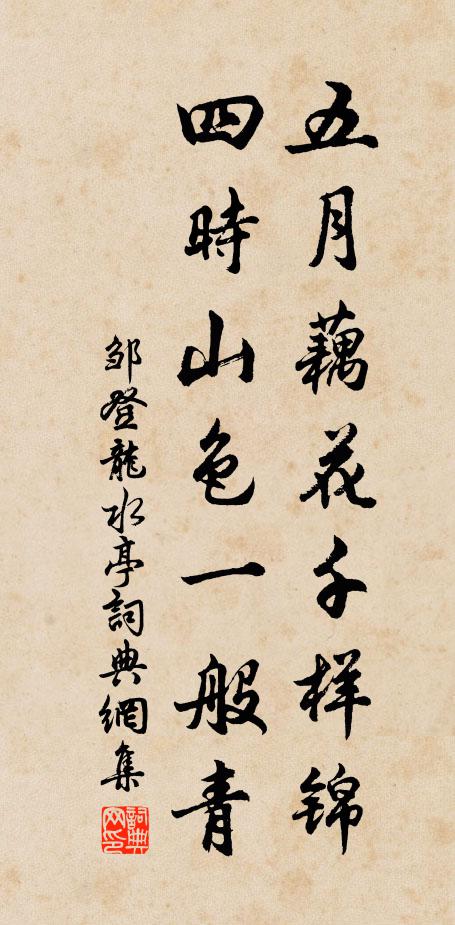 五月藕花千样锦
四時山色一般青
邹登龍水亭詞典網集
詞典网印